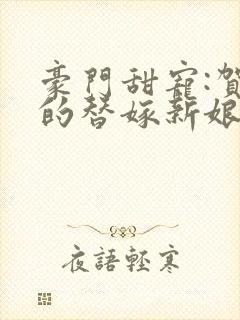 豪門甜寵:賀
的替嫁新娘
夜語輕寒